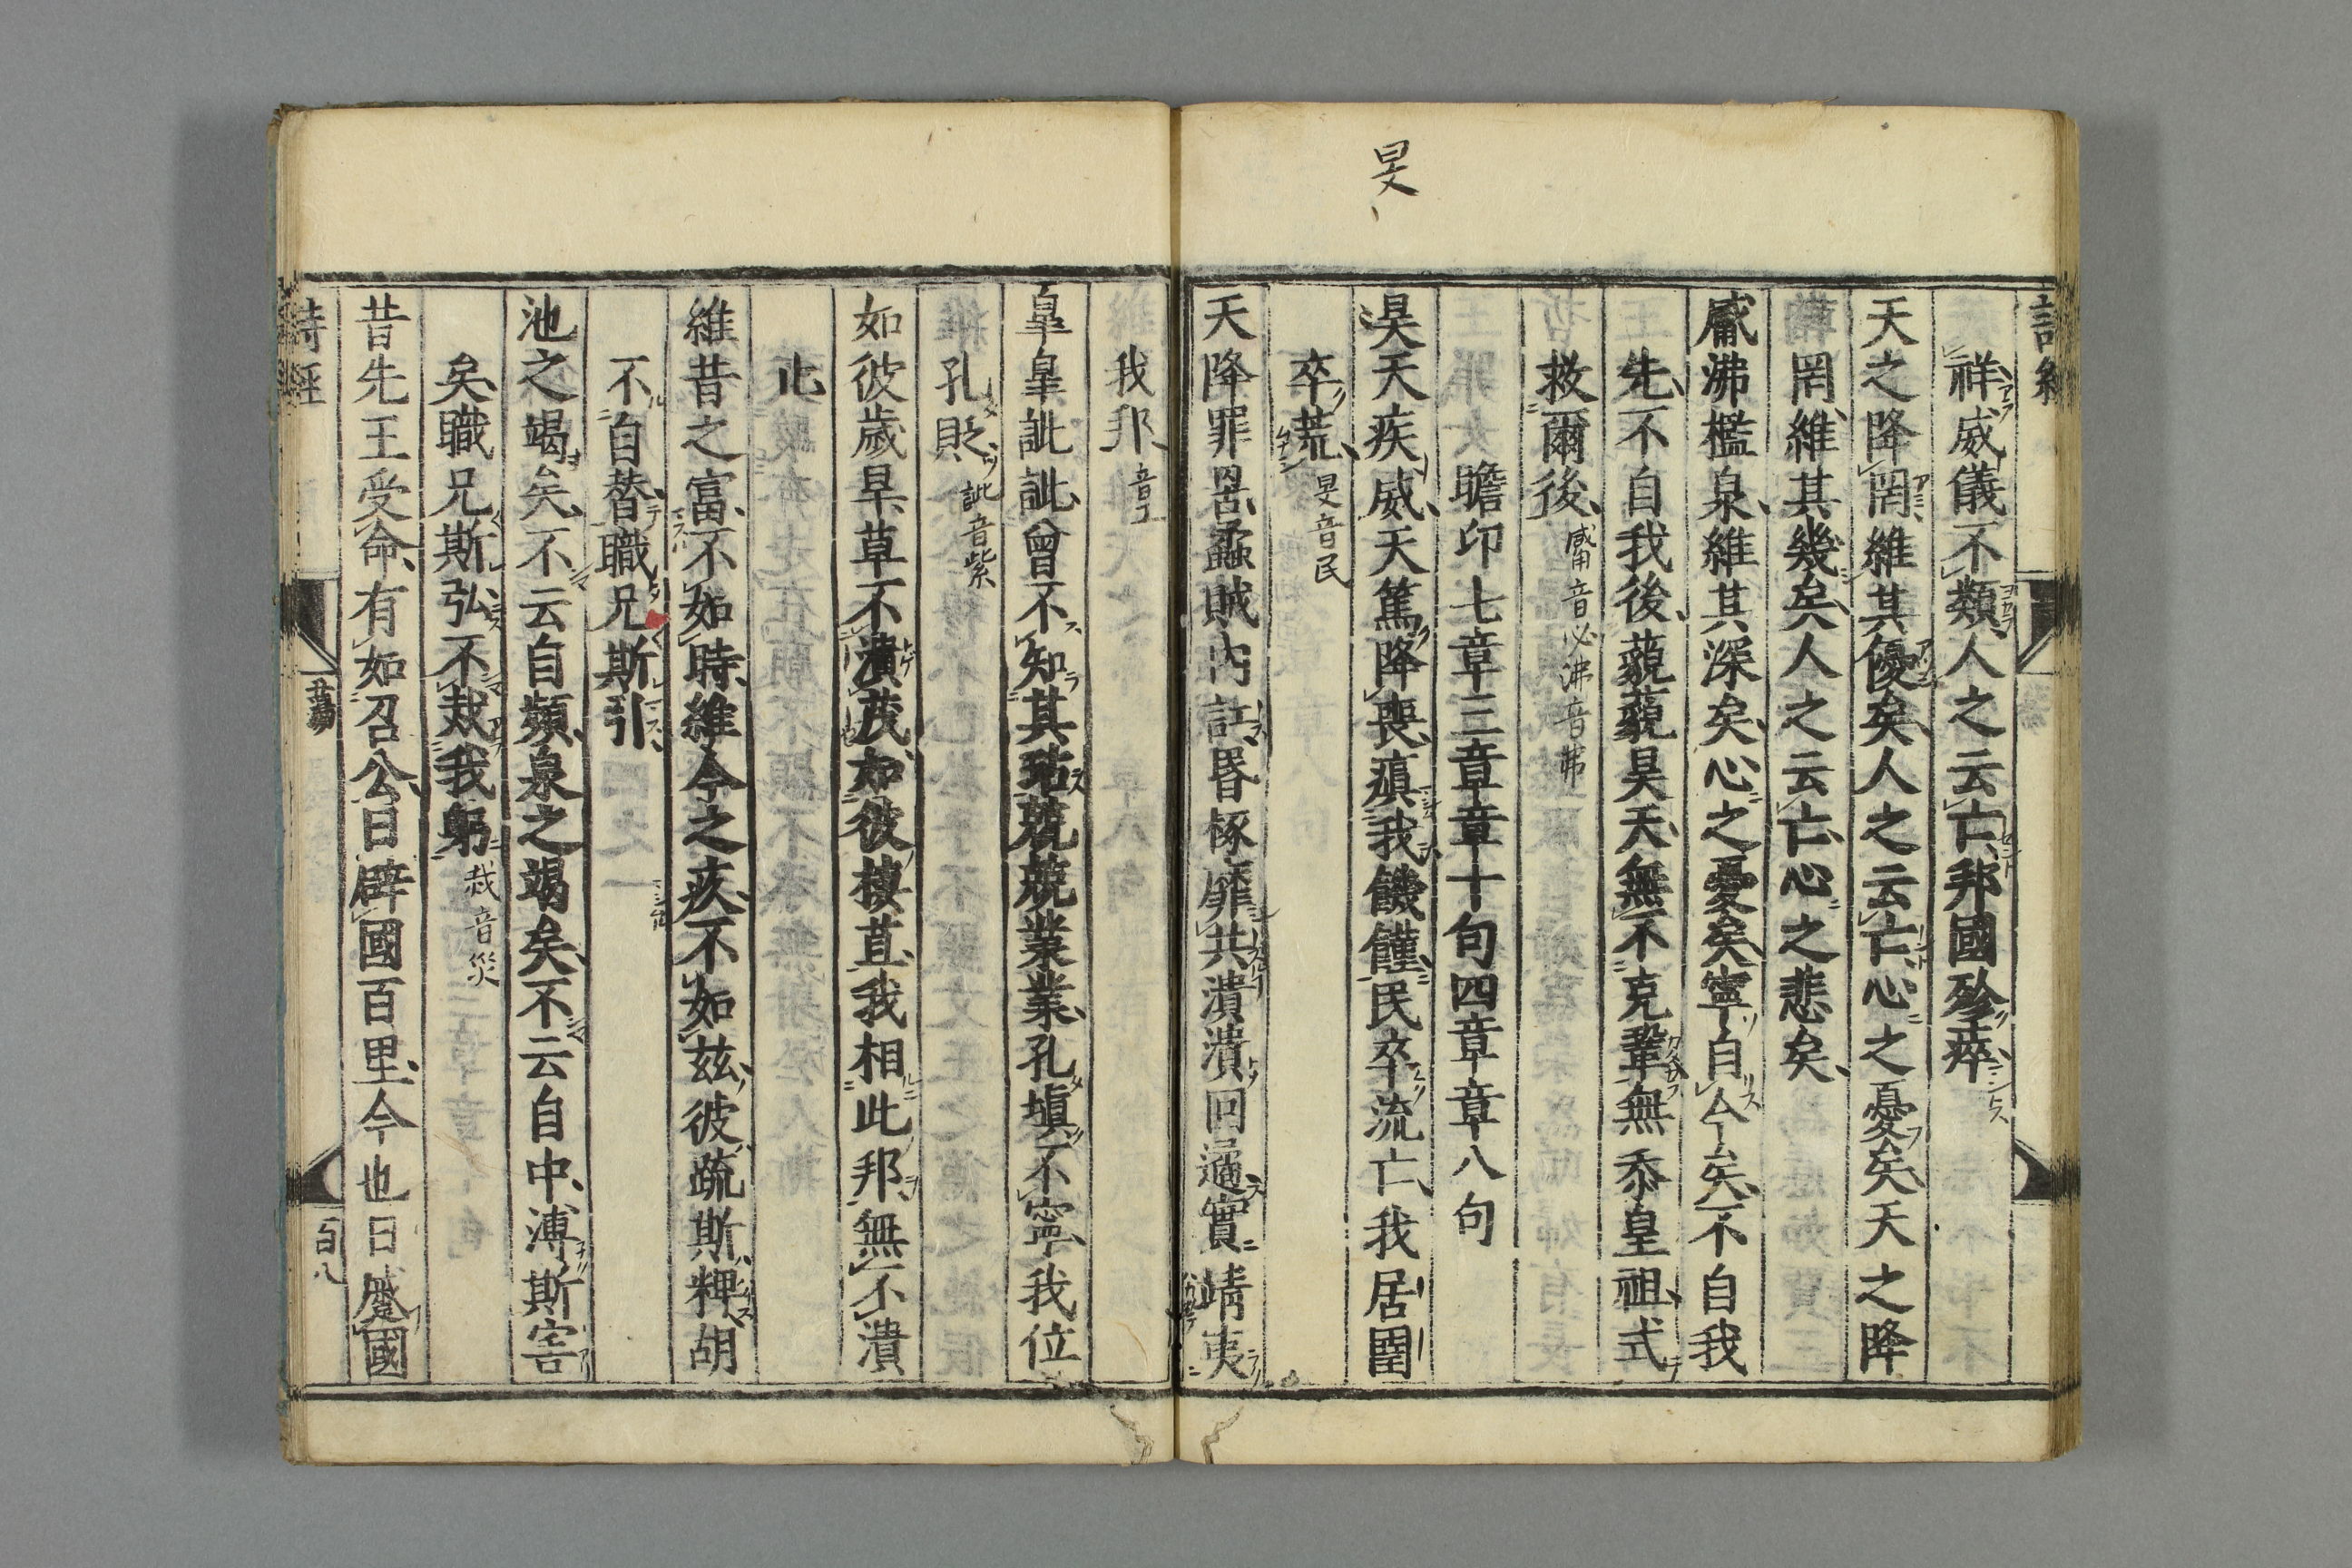 旻
詩經
祥威儀不類人之云亡邦國殄瘁
天之降罔維其優矣人之云亡心之憂矣天之降
罔維其幾矣人之云亡心之悲矣
觱沸檻泉維其深矣心之憂矣寧自今矣不自我
先不自我後藐藐昊天無不克鞏無忝皇祖式
救爾後觱音必沸音弗
瞻卬七章三章章十句四章章八句
旻天疾威天篤降喪瘨我饑饉民卒流亡我居圉
卒荒旻音民
天降罪罟蟊賊內訌昬椓靡共潰潰回遹實靖夷
我邦音工
皐皐訿訿曾不知其玷兢兢業業孔塡不寧我位
孔貶訿音紫
如彼歲旱草不潰茂如彼棲苴我相此邦無不潰
止
維昔之富不如時維今之疚不如玆彼疏斯粺胡
不自替職兄斯引
池之竭矣不云自頻泉之竭矣不云自中溥斯害
矣職兄斯弘不烖我躬烖音災
昔先王受命有如召公日辟國百里今也日蹙國
詩經
蕩
百八